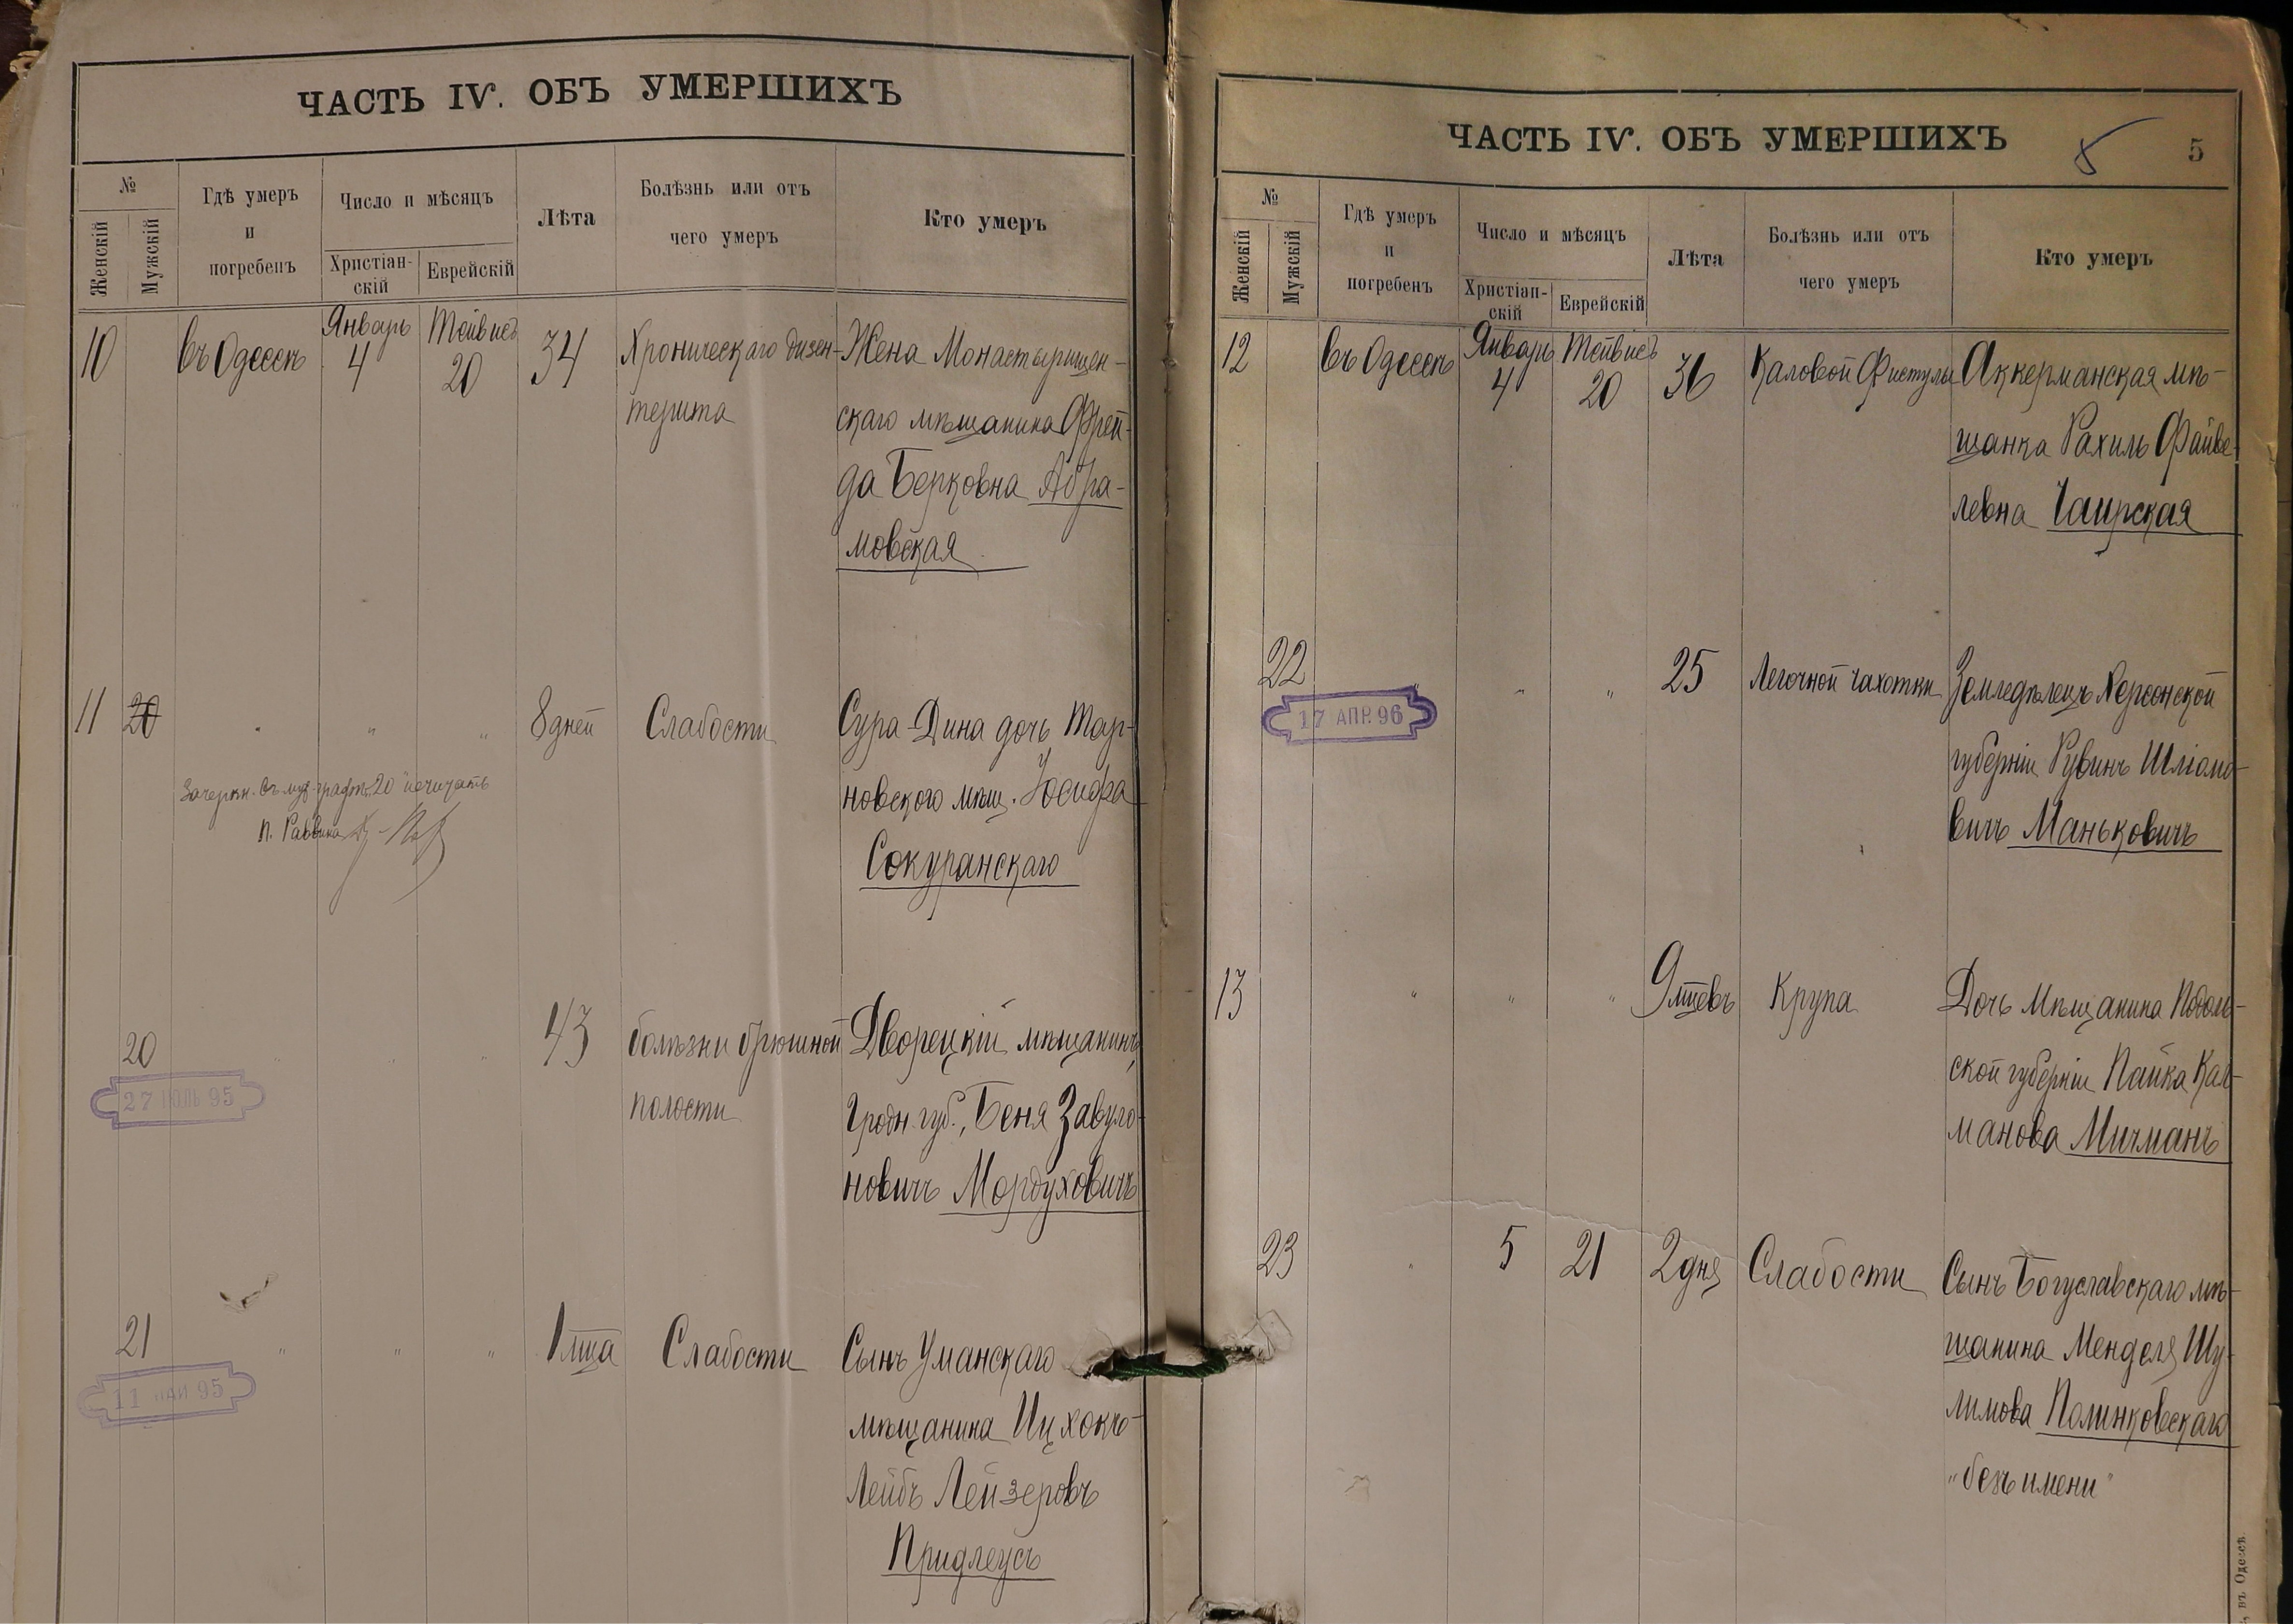 ЧАСТЬ IV. ОБЪ УМЕРШИХЪ
№
Женскій
Мужскій
Гдѣ умеръ
и
погребенъ
Число и мѣсяцъ
Христіан-
скій
Еврейскій
Лѣта
Болѣзнь или отъ
чего умеръ
Кто умеръ
10 въ Одессѣ Январь 4 Тейвисъ 20 34 Хроническаго дизен- Жена Монастырищен-
терита скаго мѣщанина Фрей-
да Берковна Абра-
мовская
11 20 " " " 8 дней Слабости Сура-Дина дочь Тар-
Зачеркн. въ муж. графѣ "20" не читать
новского мѣщ. Іосифа
п. Раввина
Сокуранскаго
20 " " " 43 болѣзни брюшной Дворецкій мѣщанинъ,
27 ІЮЛЬ 95
полости Гродн. губ., Беня Завуло-
новичъ Мордуховичъ
21 " " " 1 мца Слабости Сынъ Уманскаго
11 МАЙ 95
мѣщанина Ицхокъ-
Лейбъ Лейзеровъ
Придлеусъ
ЧАСТЬ IV. ОБЪ УМЕРШИХЪ
5
5
№
Женскій
Мужскій
Гдѣ умеръ
и
погребенъ
Число и мѣсяцъ
Христіан-
скій
Еврейскій
Лѣта
Болѣзнь или отъ
чего умеръ
Кто умеръ
12 въ Одессѣ Январь 4 Тейвисъ 20 36 Каловой Фистулы Аккерманская мѣ-
щанка Рахиль Файве-
левна Чаирская
22 " " " 25 Легочной чахотки Земледѣлецъ Херсонской
17 АПР. 96
губерніи Рувинъ Шліомо-
вичъ Маньковичъ
13 " " " 9 мцевъ Крупа Дочь мѣщанина Подоль-
ской губерніи Пайка Кал-
манова Мичманъ
23 " 5 21 2 дня Слабости Сынъ Богуславскаго мѣ-
щанина Менделя Шу-
лимова Полинковскаго
"безъ имени"
въ Одессѣ.